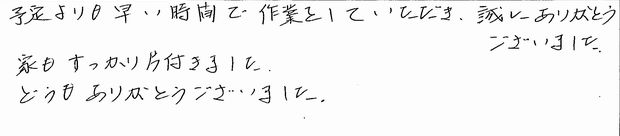 予定よりも早い時間で作業をしていただき、誠にありがとう
ございました。
家もすっかり片付きました。
どうもありがとうございました。